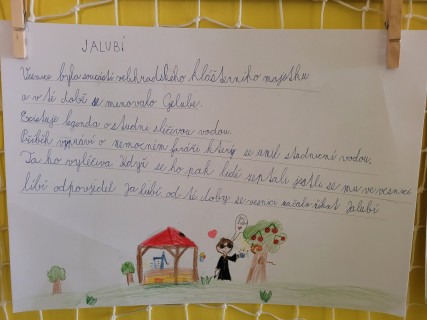 JALUBÍ
Vesnice byla součástí velehradského klášterního majetku
a v té době se jmenovalo Gelube.
Existuje legenda o studne s léčivou vodou.
Příběh vypráví o nemocném faráři který se umil studniční vodou.
Ta ho vyléčiva Když se ho pak lidé zeptali jestli se mu ve vesnici
líbí odpověděl Ja lúbí. od té doby se vesnici začalo říkat Jalubí